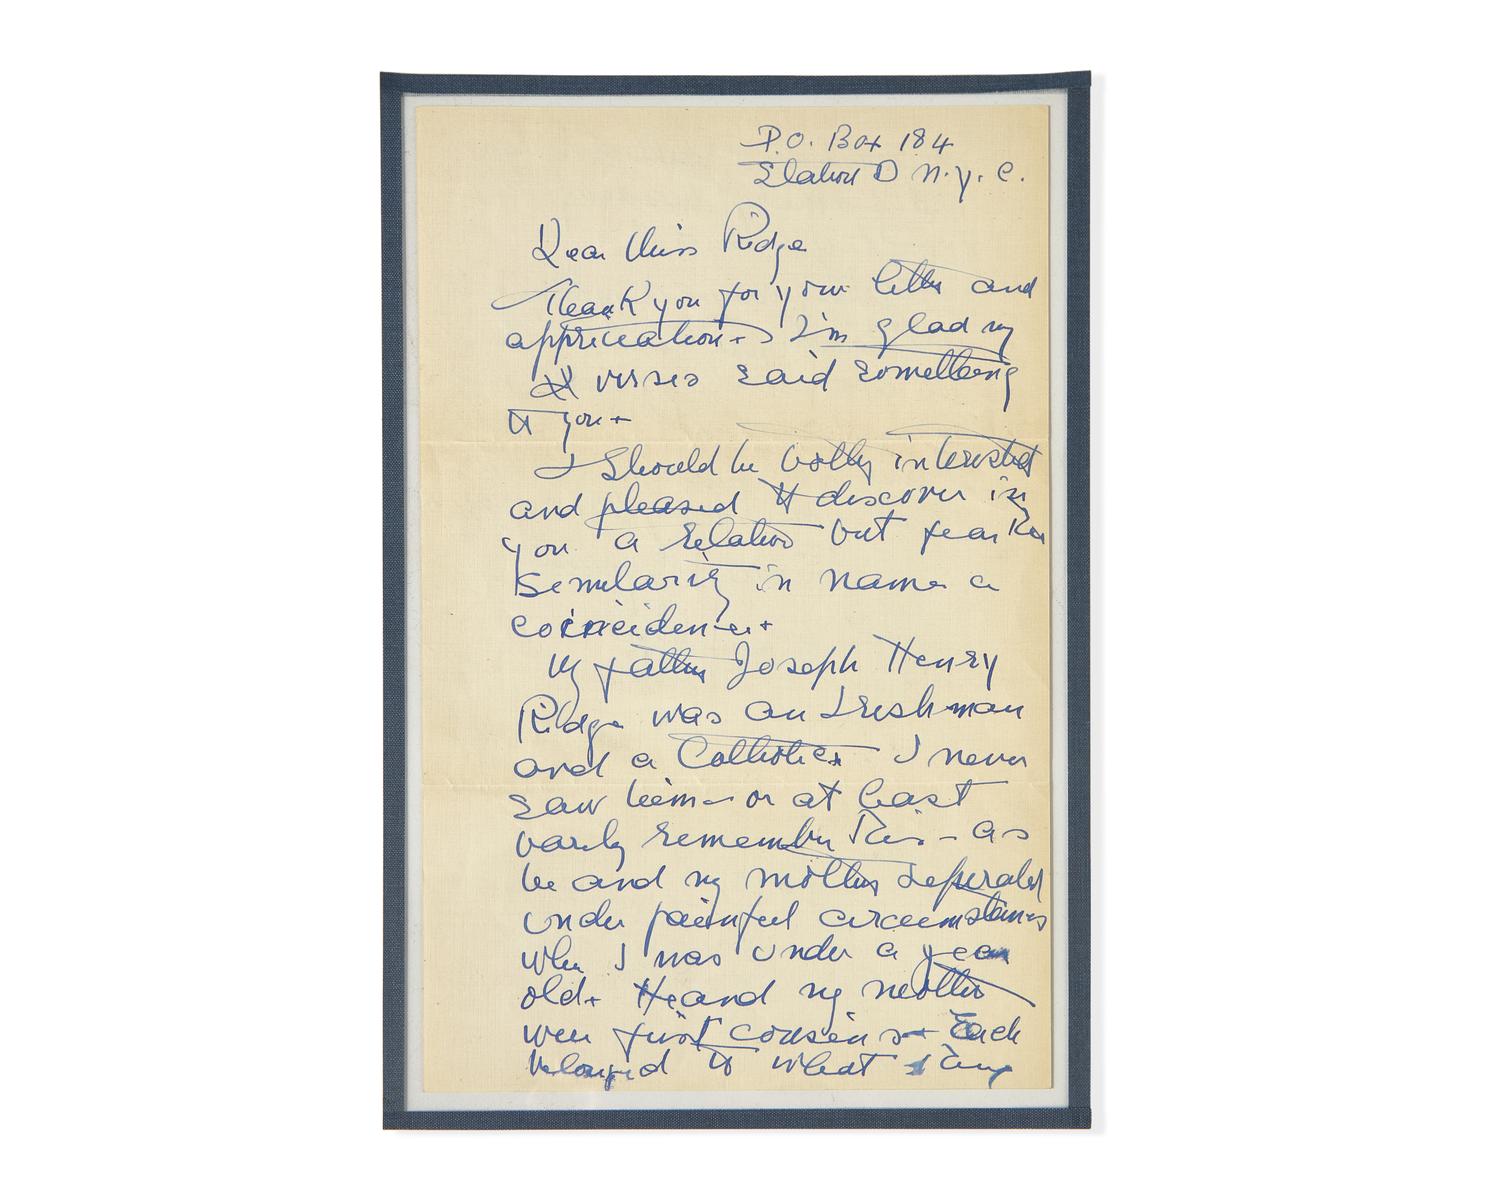 P.O. Box 184
Station D N.Y.C.
Dear Miss Ridge
Thank you for your letter and
appreciation. I'm glad my
verses said something
to you.
I should be both interested
and pleased to discover in
you a relative but fear the
similarity in name a
coincidence.
My father Joseph Henry
Ridge was an Irishman
and a Catholic. I never
saw him — or at least
barely remember him — as
he and my mother seperated
under painful circumstances
when I was under a year
old. He and my mother
were first cousins. Each
belonged to what